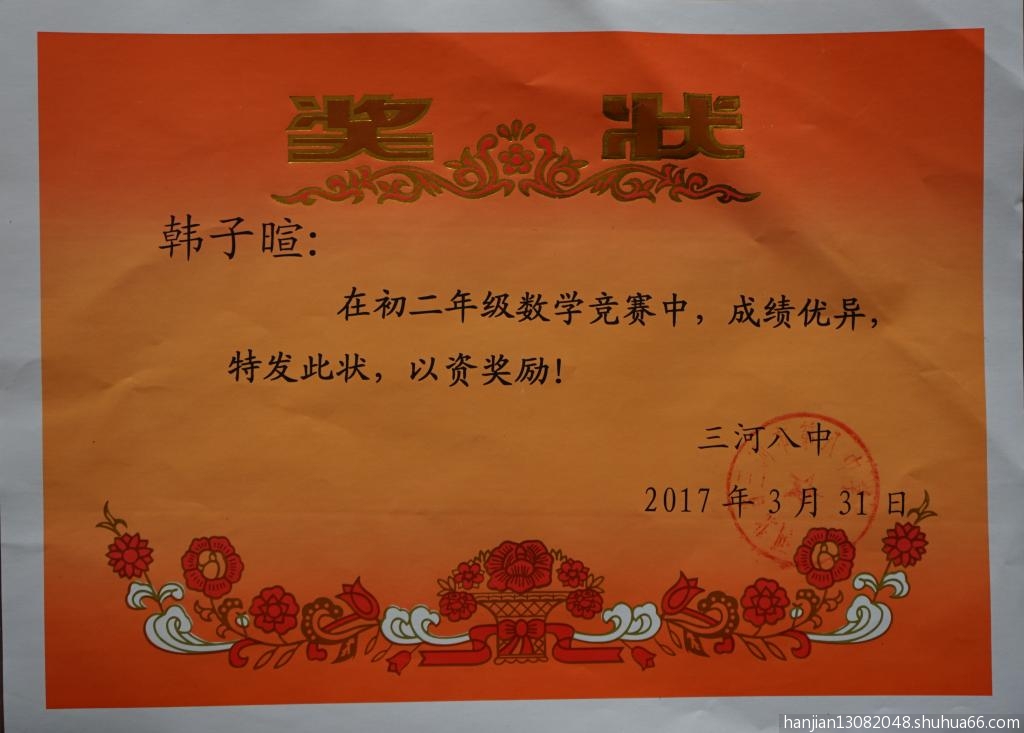 奖 状
韩子暄:
在初二年级数学竞赛中，成绩优异，
特发此状，以资奖励！
三河八中
2017 年 3 月 31 日
hanjian13082048.shuhua66.com